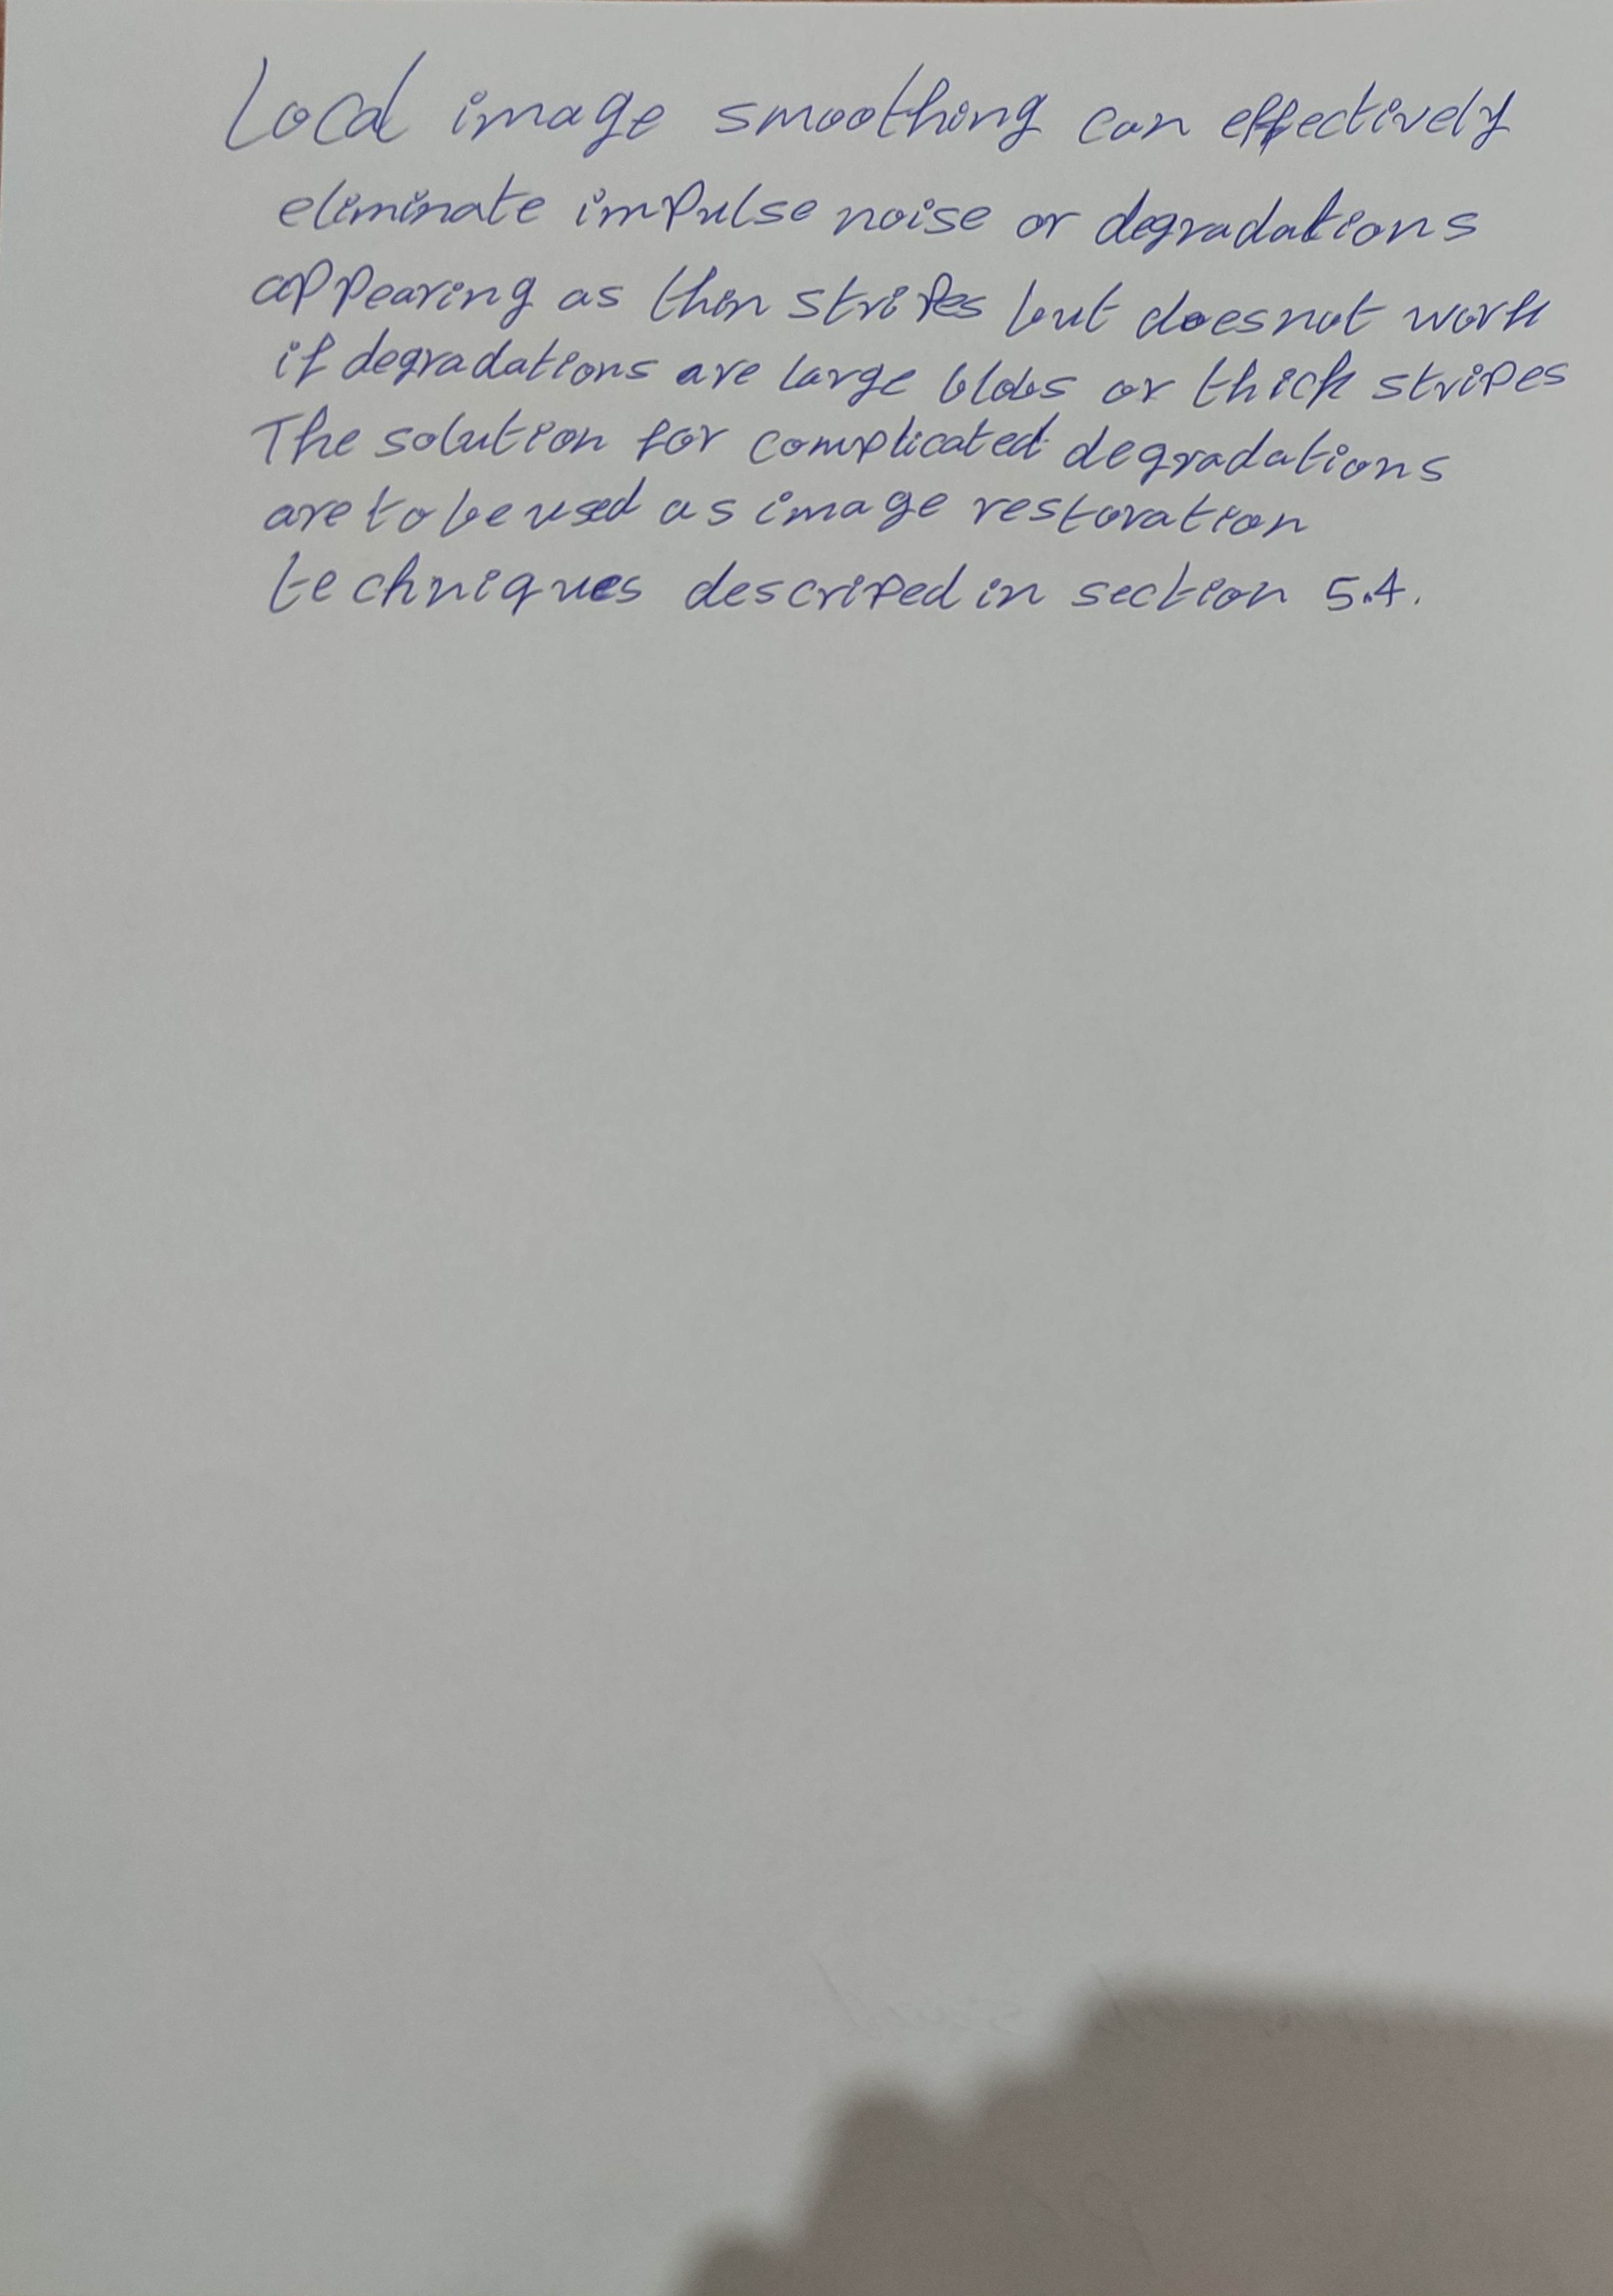 Local image smoothing can effectively
eliminate impulse noise or degradations
appearing as thin stripes but does not work
if degradations are large blobs or thick stripes
The solution for complicated degradations
are to be used as image restoration
techniques descriped in section 5.4.